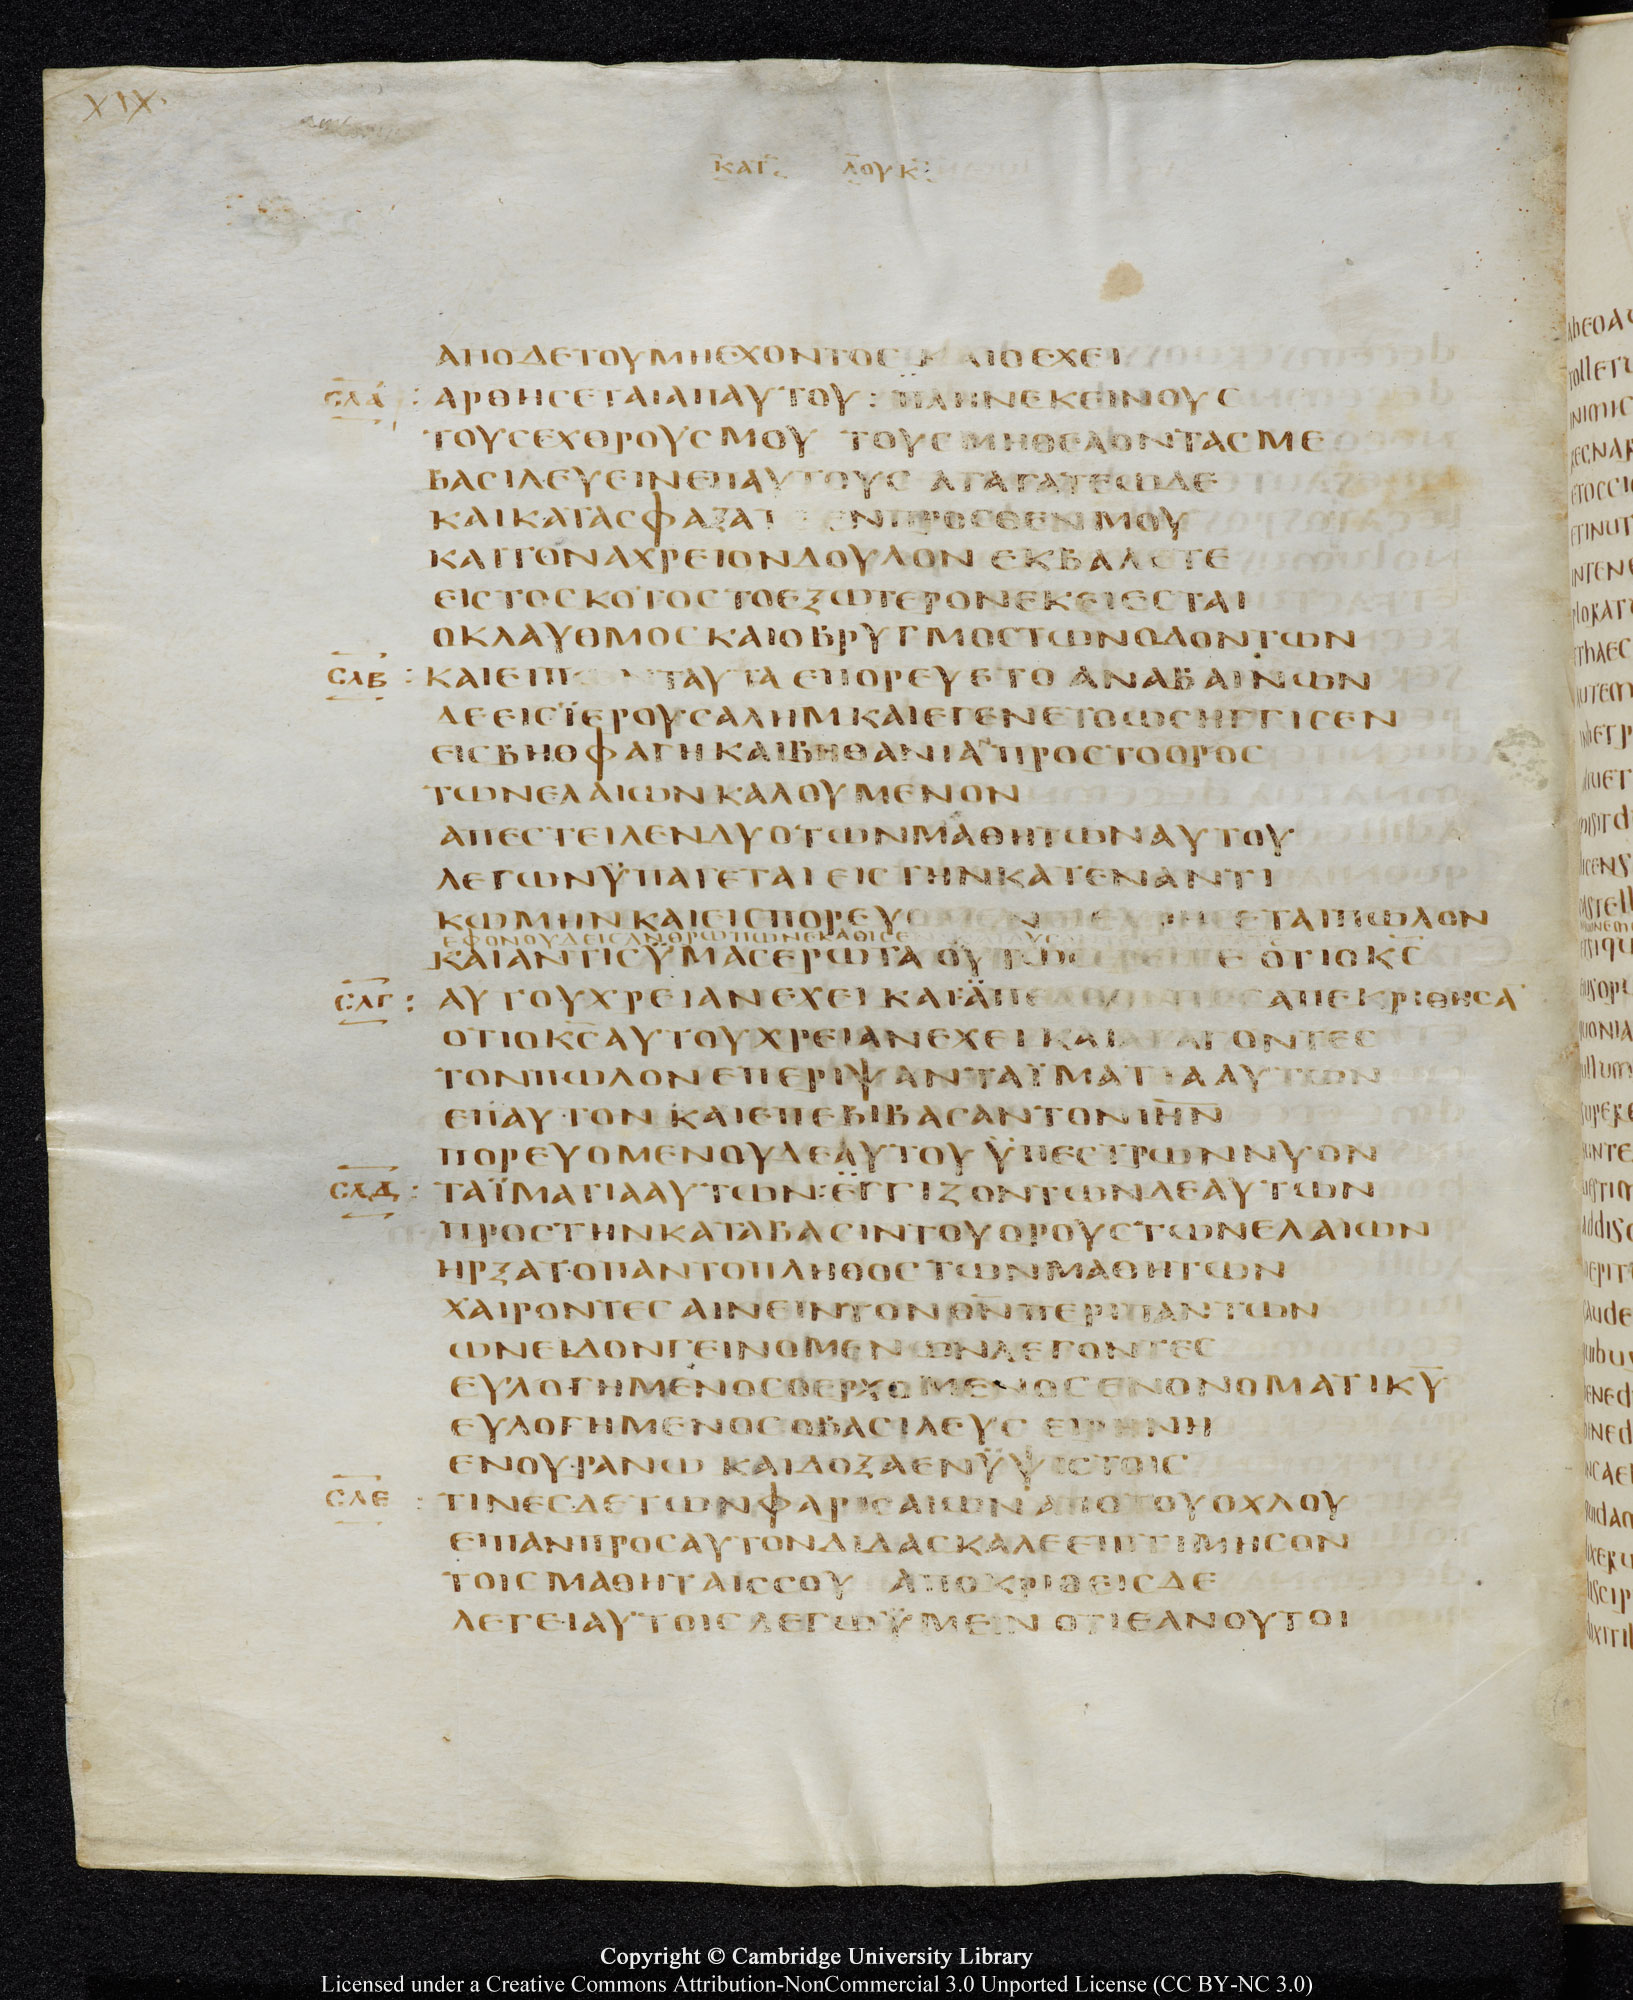 XIX.
ΚΑΤ ΛΟΥΚ
ΑΠΟΔΕΤΟΥΜΗΕΧΟΝΤΟΣ ΚΑΙΟΕΧΕΙ
ϹΛΑ : ΑΡΘΗϹΕΤΑΙΑΠΑΥΤΟΥ : ΠΛΗΝΕΚΕΙΝΟΥϹ
ΤΟΥϹΕΧΘΡΟΥϹΜΟΥ ΤΟΥϹΜΗΘΕΛΟΝΤΑϹΜΕ
ΒΑϹΙΛΕΥΕΙΝΕΠΑΥΤΟΥϹ ΑΓΑΓΑΤΕΩΔΕ
ΚΑΙΚΑΤΑϹΦΑΞΑΤΕ ΕΝΠΡΟϹΘΕΝΜΟΥ
ΚΑΙΤΟΝΑΧΡΕΙΟΝΔΟΥΛΟΝ ΕΚΒΑΛΕΤΕ
ΕΙϹΤΟϹΚΟΤΟϹΤΟΕΞΩΤΕΡΟΝΕΚΕΙΕϹΤΑΙ
ΟΚΛΑΥΘΜΟϹΚΑΙΟΒΡΥΓΜΟϹΤΩΝΟΔΟΝΤΩΝ
ϹΛΒ : ΚΑΙΕΙΠΩΝΤΑΥΤΑ ΕΠΟΡΕΥΕΤΟ ΑΝΑΒΑΙΝΩΝ
ΔΕΕΙϹΪΕΡΟΥϹΑΛΗΜ ΚΑΙΕΓΕΝΕΤΟΩϹΗΓΓΙϹΕΝ
ΕΙϹΒΗΘΦΑΓΗΚΑΙΒΗΘΑΝΙΑΝΠΡΟϹΤΟΟΡΟϹ
ΤΩΝΕΛΑΙΩΝΚΑΛΟΥΜΕΝΟΝ
ΑΠΕϹΤΕΙΛΕΝΔΥΟΤΩΝΜΑΘΗΤΩΝΑΥΤΟΥ
ΛΕΓΩΝΫΠΑΓΕΤΑΙ ΕΙϹΤΗΝΚΑΤΕΝΑΝΤΙ
ΚΩΜΗΝ ΚΑΙΕΙϹΠΟΡΕΥΟΜΕΝΟΙΕΥΡΗϹΕΤΑΙΠΩΛΟΝ
ΕΦΟΝΟΥΔΕΙϹΑΝΘΡΩΠΩΝΕΚΑΘΙϹΕ
ΚΑΙΑΝΤΙϹΫΜΑϹΕΡΩΤΑ ΟΥΤΩϹ ΟΤΙΟΚϹ
ϹΛΓ : ΑΥΤΟΥΧΡΕΙΑΝΕΧΕΙ ΚΑΙΑΠΕΛΘΟΝΤΕϹΑΠΕΚΡΙΘΗϹΑ
ΟΤΙΟΚϹΑΥΤΟΥΧΡΕΙΑΝΕΧΕΙ ΚΑΙΑΓΑΓΟΝΤΕϹ
ΤΟΝΠΩΛΟΝΕΠΕΡΙΨΑΝΤΑΪΜΑΤΙΑΑΥΤΩΝ
ΕΠΑΥΤΟΝ ΚΑΙΕΠΕΒΙΒΑϹΑΝΤΟΝΙΗΝ
ΠΟΡΕΥΟΜΕΝΟΥΔΕΑΥΤΟΥ ΫΠΕϹΤΡΩΝΝΥΟΝ
ϹΛΔ : ΤΑΪΜΑΤΙΑΑΥΤΩΝ : ΕΓΓΙΖΟΝΤΩΝΔΕΑΥΤΩΝ
ΠΡΟϹΤΗΝΚΑΤΑΒΑϹΙΝΤΟΥΟΡΟΥϹΤΩΝΕΛΑΙΩΝ
ΗΡΞΑΤΟΠΑΝΤΟΠΛΗΘΟϹΤΩΝΜΑΘΗΤΩΝ
ΧΑΙΡΟΝΤΕϹΑΙΝΕΙΝΤΟΝΘΝΠΕΡΙΠΑΝΤΩΝ
ΩΝΕΙΔΟΝΓΕΙΝΟΜΕΝΩΝΛΕΓΟΝΤΕϹ
ΕΥΛΟΓΗΜΕΝΟϹΟΕΡΧΟΜΕΝΟϹΕΝΟΝΟΜΑΤΙΚΥ
ΕΥΛΟΓΗΜΕΝΟϹΟΒΑϹΙΛΕΥϹ ΕΙΡΗΝΗ
ΕΝΟΥΡΑΝΩ ΚΑΙΔΟΞΑΕΝΫΨΙϹΤΟΙϹ
ϹΛΕ : ΤΙΝΕϹΔΕΤΩΝΦΑΡΙϹΑΙΩΝΑΠΟΤΟΥΟΧΛΟΥ
ΕΙΠΑΝΠΡΟϹΑΥΤΟΝΔΙΔΑϹΚΑΛΕΕΠΙΤΙΜΗϹΟΝ
ΤΟΙϹΜΑΘΗΤΑΙϹϹΟΥ ΑΠΟΚΡΙΘΕΙϹΔΕ
ΛΕΓΕΙΑΥΤΟΙϹΛΕΓΩΫΜΕΙΝ ΟΤΙΕΑΝΟΥΤΟΙ
Copyright © Cambridge University Library
Licensed under a Creative Commons Attribution-NonCommercial 3.0 Unported License (CC BY-NC 3.0)